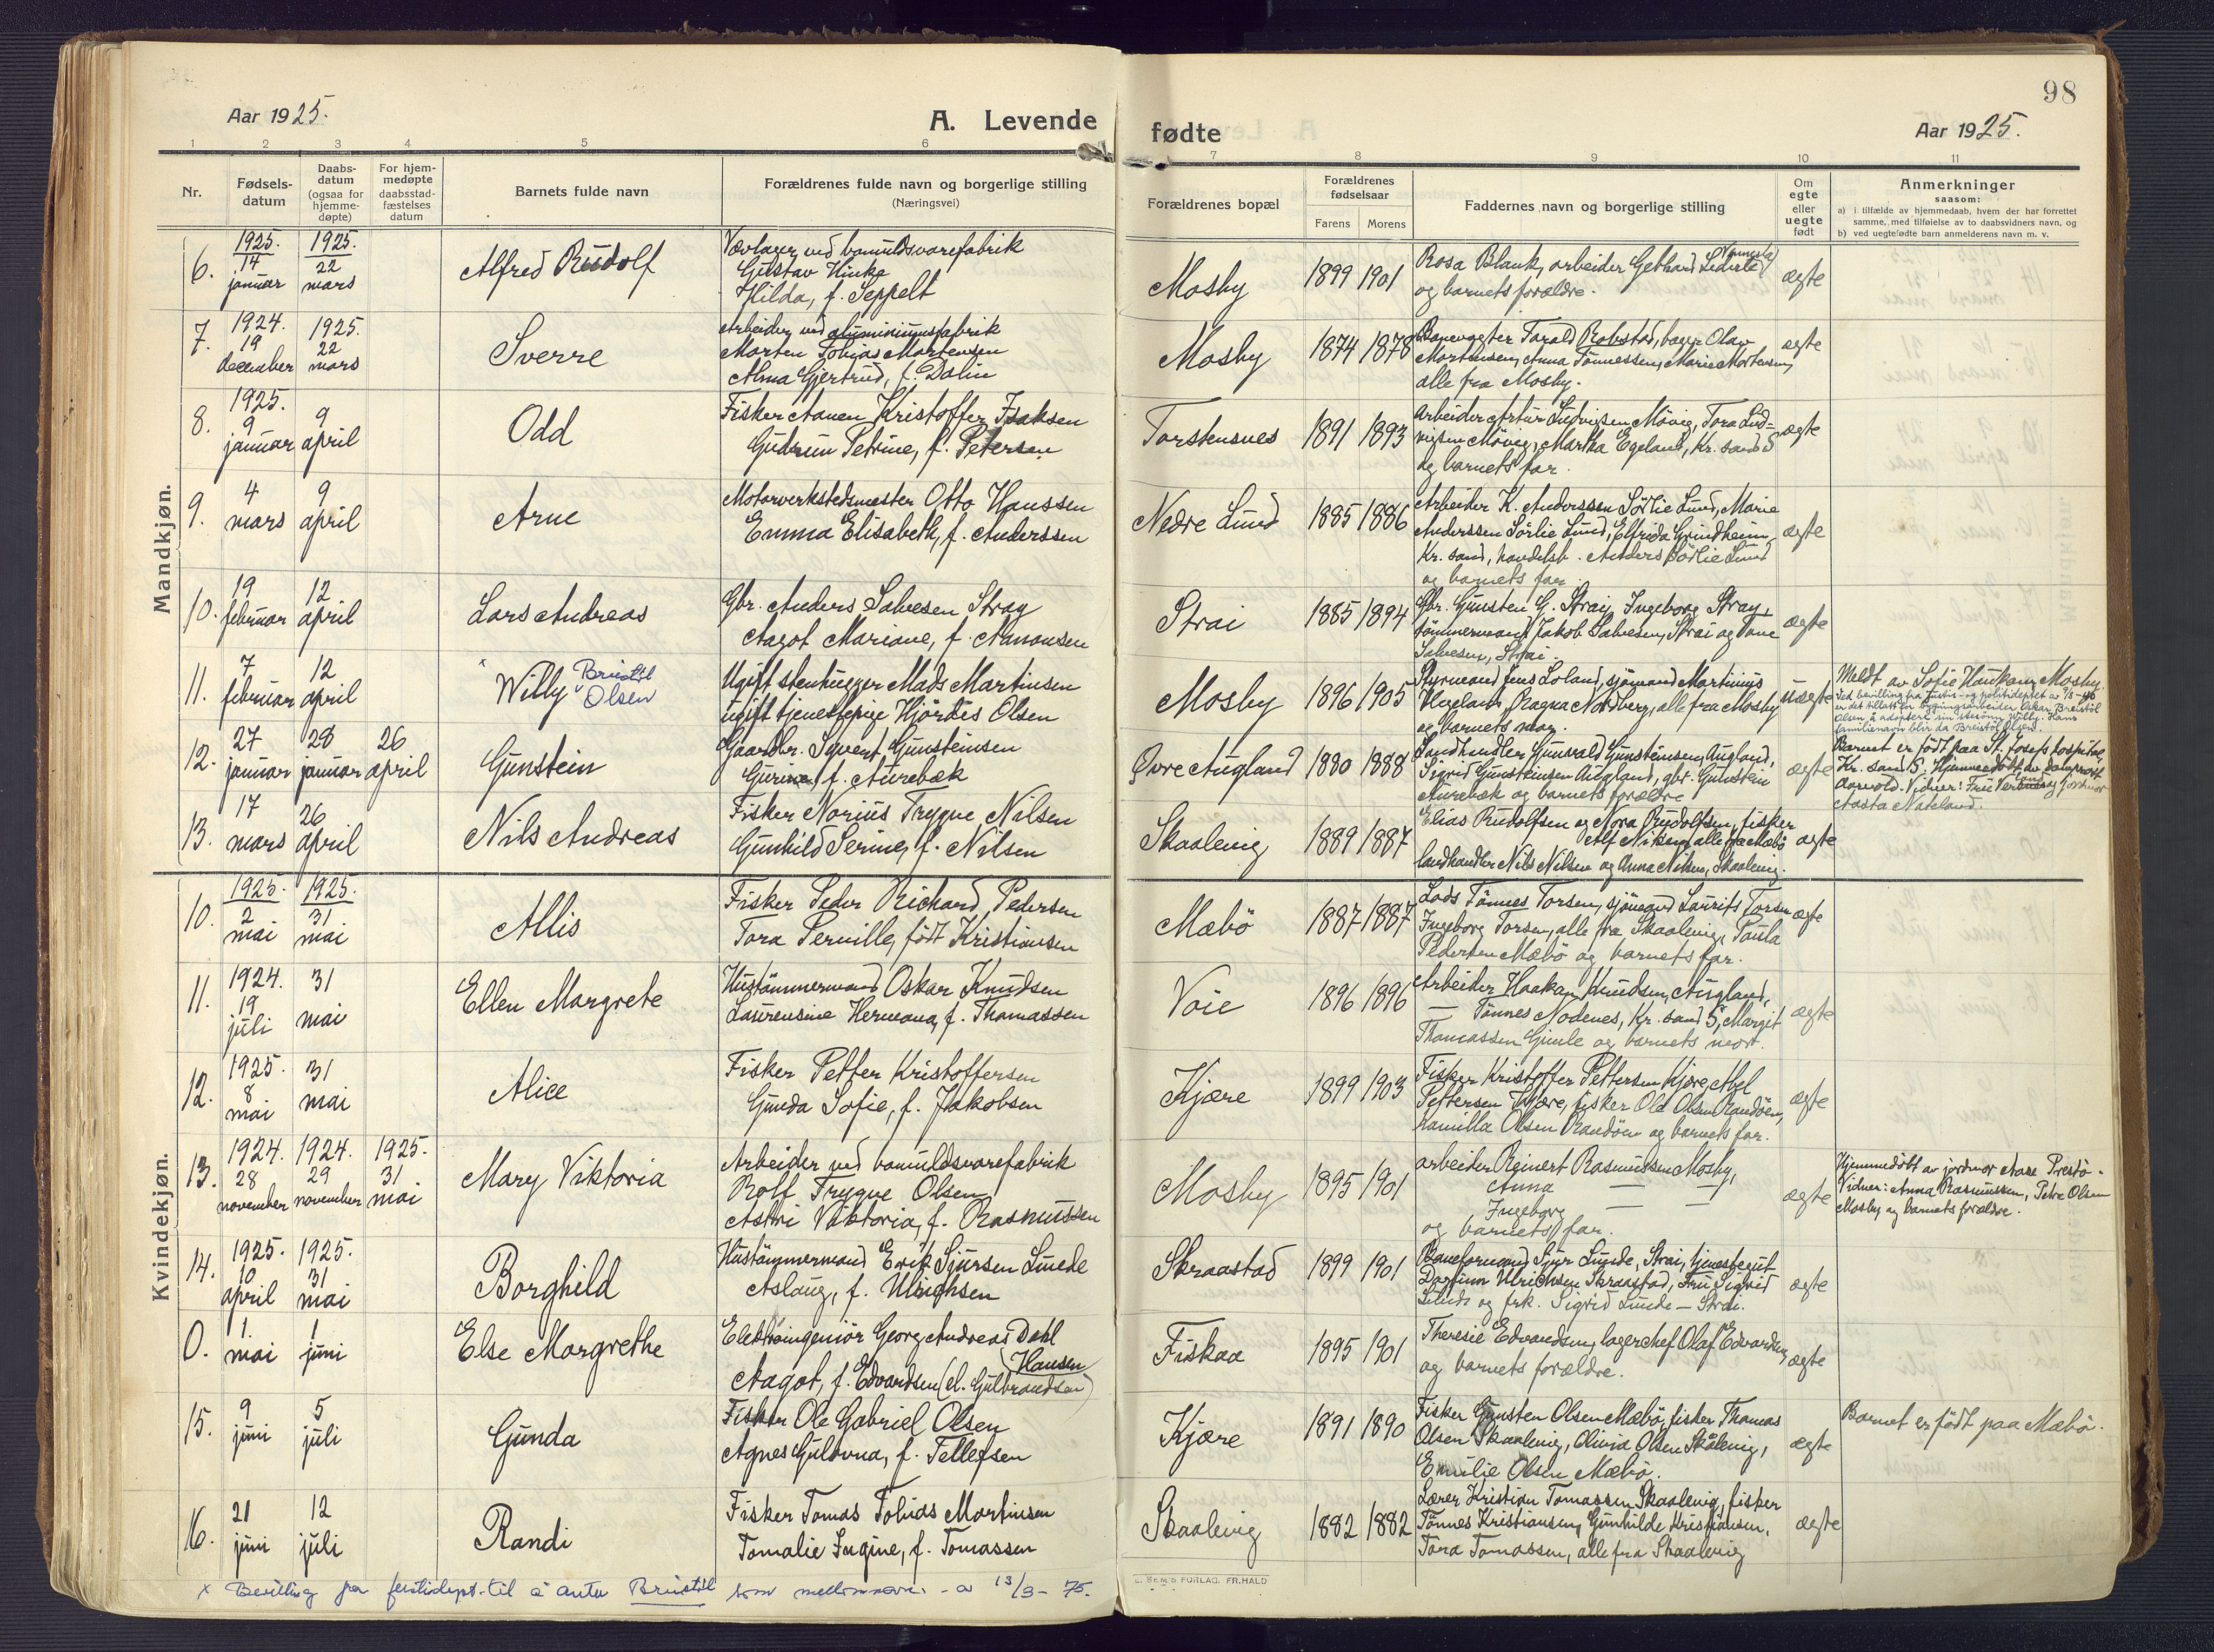 98
Aar 1925.
A. Levende
fødte
Aar 1925.
1 2 3 4 5 6 7 8 9 10 11
Nr.
Fødsels-
datum
Daabs-
datum
(ogsaa for
hjemme-
døpte)
For hjem-
medøpte
daabsstad-
fæstelses
datum
Barnets fulde navn
Forældrenes fulde navn og borgerlige stilling
(Næringsvei)
Forældrenes bopæl
Forældrenes
fødselsaar
Farens Morens
Faddernes navn og borgerlige stilling
Om
egte
eller
uegte
født
Anmerkninger
saasom:
a) i tilfælde av hjemmedaab, hvem der har forrettet
samme, med tilføielse av to daabsvidners navn, og
b) ved uegtefødte barn anmelderens navn m. v.
Mandkjøn.
6.
1925. 14 januar
1925. 22 mars
Alfred Rudolf
Vævlager ved bomuldsvarefabrik
Gustav Hinke
Hilda, f. Seppelt
Mosby
1899 1901
Rosa Blank, arbeider Gebhard Lederle
og barnets forældre.
ægte
7.
1924. 19 december
1925. 22 mars
Sverre
Arbeider ved aluminiumsfabrik
Morten Tobias Martensen
Alma Gjertrud, f. Dalin
Mosby
1874 1878
Banevogter Tarald Robstad, bager Olav
Mortensen, Anna Tönnessen, Marie Mortensen,
alle fra Mosby.
ægte
8.
1925. 9 januar
9 april
Odd
Fisker Aanen Kristoffer Isaksen
Gudrun Petrine, f. Petersen
Torstensnes
1891 1893
Arbeider Artur Ludvigsen Mövig, Tora Lud=
vigsen Mövig, Martha Egeland, Kr. sand S
og barnets far.
ægte
9.
4 mars
9 april
Arne
Motorverkstedsmester Otto Hanssen
Emma Elisabeth, f. Anderssen
Nedre Lund
1885 1886
Arbeider K. Anderssen Sörlie Lund, Marie
Anderssen Sörlie Lund, Elfrida Grindheim
Kr. sand, handelsb. Anders Sörlie Lund
og barnets far
ægte
10.
19 februar
12 april
Lars Andreas
Gbr. Anders Salvesen Stray
Aagot Mariane, f. Aanonsen
Strai
1885 1894
Gbr. Gunsten G. Strai, Ingeborg Stray,
tömmermand Jakob Salvesen, Strai og Tone
Salvesen, Strai.
ægte
11.
7 februar
12 april
x Willy Breistöl Olsen
Ugift, stenhugger Mads Martinsen
ugift tjenestepige Hjördis Olsen
Mosby
1896 1905
Styrmand Jens Loland, sjömand Martinius
Hegeland, Ragna Nordberg, alle fra Mosby
og barnets mor.
uægte
Meldt av Sofie Haukom, Mosby.
Ved bevilling fra Justis- og politideptet av
er det tillatt for bygningsarbeider Oskar Breistöl
Olsen å adoptere sin stesönn Willy. Hans
familienavn blir da Breistöl Olsen.
12.
27 januar
28 januar
26 april
Gunstein
Gaardbr. Syvert Gunsteinsen
Gurine f. Aurebæk
Øvre Augland
1880 1888
Landhandler Gunvald Gunsteinsen, Augland,
Sigrid Gunsteinsen Augland, gbr. Gunstein
Aurebæk og barnets forældre
ægte
Barnet er födt paa St. Josefs hospital,
Kr. sand S. Hjemmedöbt av
Vidner: Frue jordmor
Aasta Nateland.
13.
17 mars
26 april
Nils Andreas
Fisker Norius Trygve Nilsen
Gunhild Serine, f. Nilsen
Skaalevig
1889 1887
Elias Rudolfsen og Nora Rudolfsen, fisker
Alf Nilsen, alle fra Mæbö
landhandler Nils Nilsen og Anna Nilsen, Skaalevig.
ægte
Kvindekjøn.
10.
1925. 2 mai
1925. 31 mai
Allis
Fisker Peder Richard Pedersen
Tora Pernille, födt Kristiansen
Mæbö
1887 1887
Lods Tönnes Torsen, sjömand Laurits Torsen
Ingeborg Torsen, alle fra Skaalevig, Paula
Pedersen Mæbö og barnets far.
ægte
11.
1924. 19 juli
31 mai
Ellen Margrete
Hustömmermand Oskar Knudsen
Laurensine Hermana, f. Thomassen
Voie
1896 1896
Arbeider Haakon Knudsen, Augland,
— Tönnes Nodenes, Kr. sand S, Margit
Thomassen Gimle og barnets mor.
ægte
12.
1925. 8 mai
31 mai
Alice
Fisker Petter Kristoffersen
Gunda Sofie, f. Jakobsen
Kjære
1899 1903
Fisker Kristoffer Pettersen Kjære, Abel
Pettersen Kjære, fisker Ole Olsen Randöen,
Kamilla Olsen Randöen og barnets far.
ægte
13.
1924. 28 november
1924. 29 november
1925. 31 mai
Mary Viktoria
Arbeider ved bomuldsvarefabrik
Rolf Trygve Olsen
Astri Viktoria, f. Rasmussen
Mosby
1895 1901
arbeider Reinert Rasmussen Mosby,
Anna — —
Ingeborg — —
og barnets far.
ægte
Hjemmedöbt av jordmor Aase Prestö.
Vidner: Anna Rasmussen, Petra Olsen
Mosby og barnets forældre.
14.
1925. 10 april
1925. 31 mai
Borghild
Hustömmermand Erik Sjursen Lunde
Aslaug, f. Ulrichsen
Skraastad
1899 1901
Baneformand Sjur Lunde, Strai, tjenestegut
Dagfinn Ulrichsen Skraastad, fru Sigrid
Lunde og frk. Sigrid Lunde — Strai.
ægte
0.
1. mai
1 juni
Else Margrethe
Elektroingeniör Georg Andreas Dahl
(Hansen
Aagot, f. Edvardsen (el. Gulbrandsen)
Fiskaa
1895 1901
Theresie Edvardsen, lagerchef Olaf Edvardsen,
og barnets forældre.
ægte
15.
9 juni
5 juli
Gunda
Fisker Ole Gabriel Olsen
Agnes Gulovna, f. Tellefsen
Kjære
1891 1890
Fisker Gunsten Olsen Mæbö, fisker Thomas
Olsen Skaalevig, Olivia Olsen Skålevig,
Emilie Olsen Mæbö.
ægte
Barnet er födt paa Mæbö.
16.
21 juni
12 juli
Randi
Fisker Tomas Tobias Martinsen
Tomalie Ingine, f. Tomassen
Skaalevig
1882 1882
Lærer Kristian Tomassen Skaalevig, fisker
Tönnes Kristiansen, Gunhilde Kristiansen,
Tora Tomassen, alle fra Skaalevig
ægte
x Bevilling fra justisdept. til å anta Breistöl som mellomnavn - av 13/3- 75.
E. SEM'S FORLAG. FR.HALD